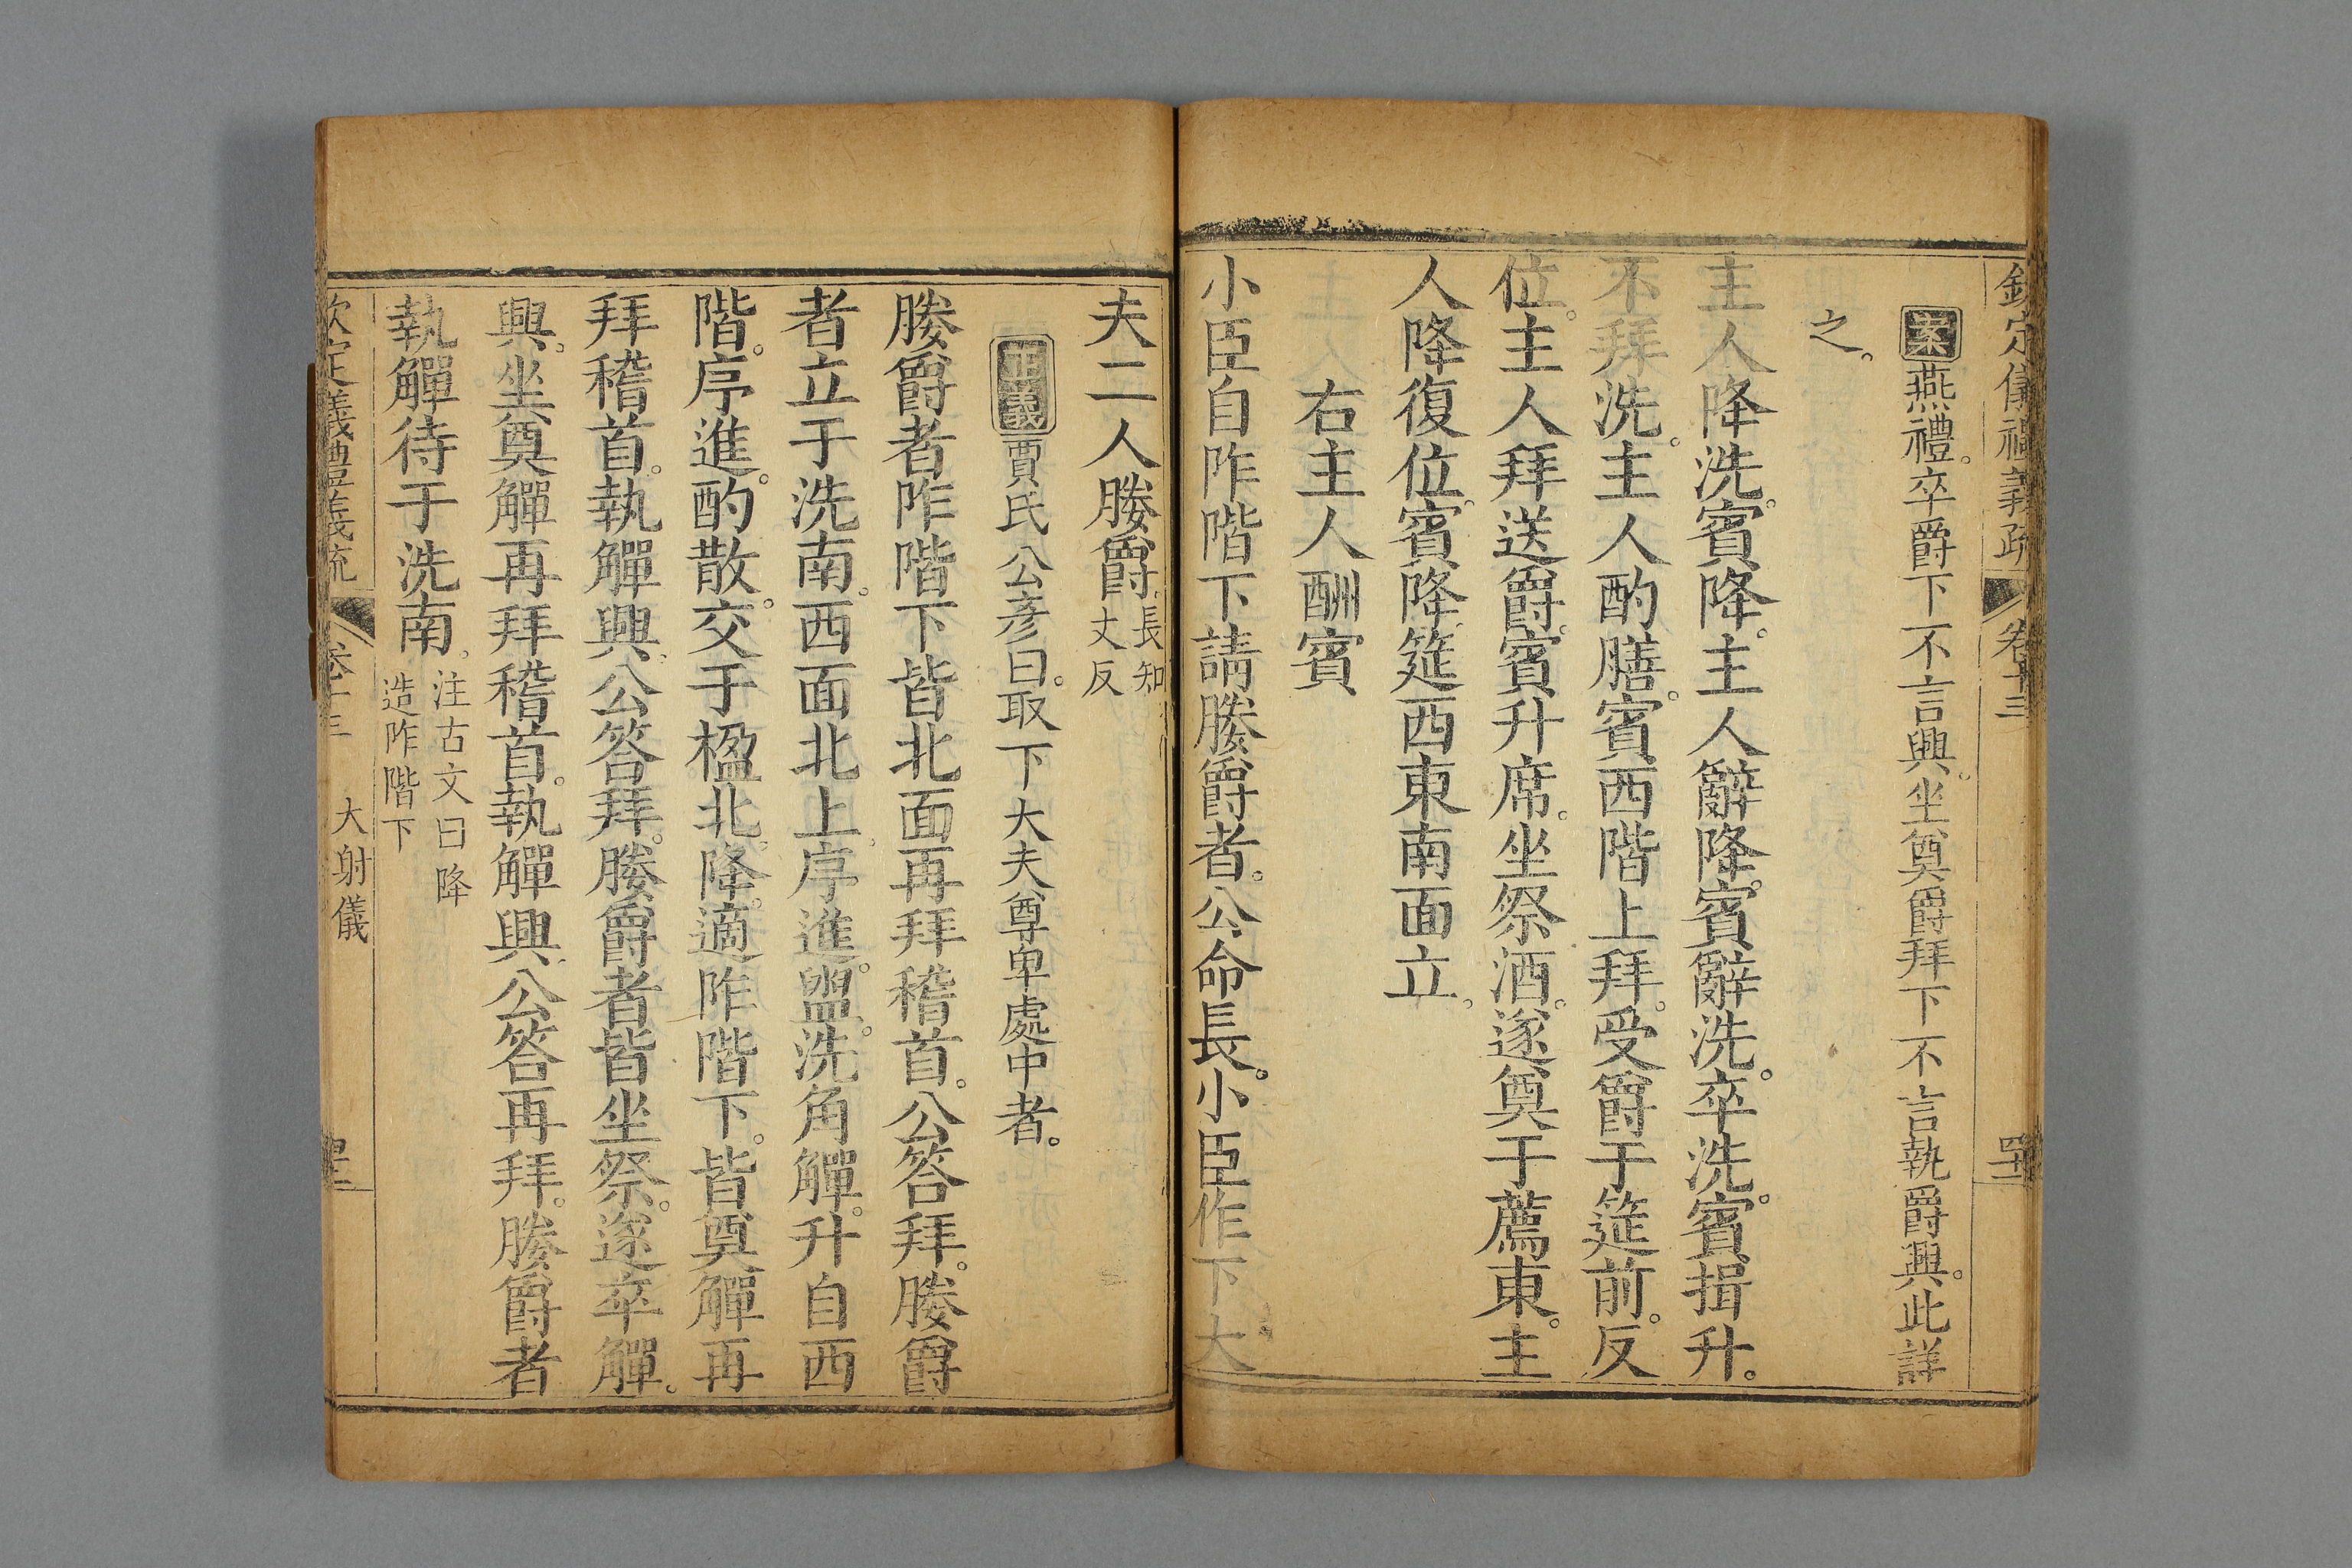 欽定儀禮義疏 卷十三
案燕禮。卒爵下不言興。坐奠爵拜下不言執爵興。此詳
之。
主人降洗。賓降。主人辭降。賓辭洗。卒洗。賓揖升。
不拜洗。主人酌膳。賓西階上拜。受爵于筵前。反
位。主人拜送爵。賓升席。坐祭酒。遂奠于薦東。主
人降復位。賓降筵西東南面立。
右主人酬賓
小臣自阼階下請媵爵者。公命長。小臣作下大
夫二人媵爵。長知丈反
正義賈氏公彥曰。取下大夫尊卑處中者。
媵爵者阼階下皆北面再拜稽首。公答拜。媵爵
者立于洗南。西面北上。序進。盥洗角觶。升自西
階。序進。酌散。交于楹北。降。適阼階下。皆奠觶再
拜稽首。執觶興。公答拜。媵爵者皆坐祭。遂卒觶。
興。坐奠觶再拜稽首。執觶興。公答再拜。媵爵者
執觶待于洗南。注古文曰降造阼階下
欽定儀禮義疏 卷十三 大射儀